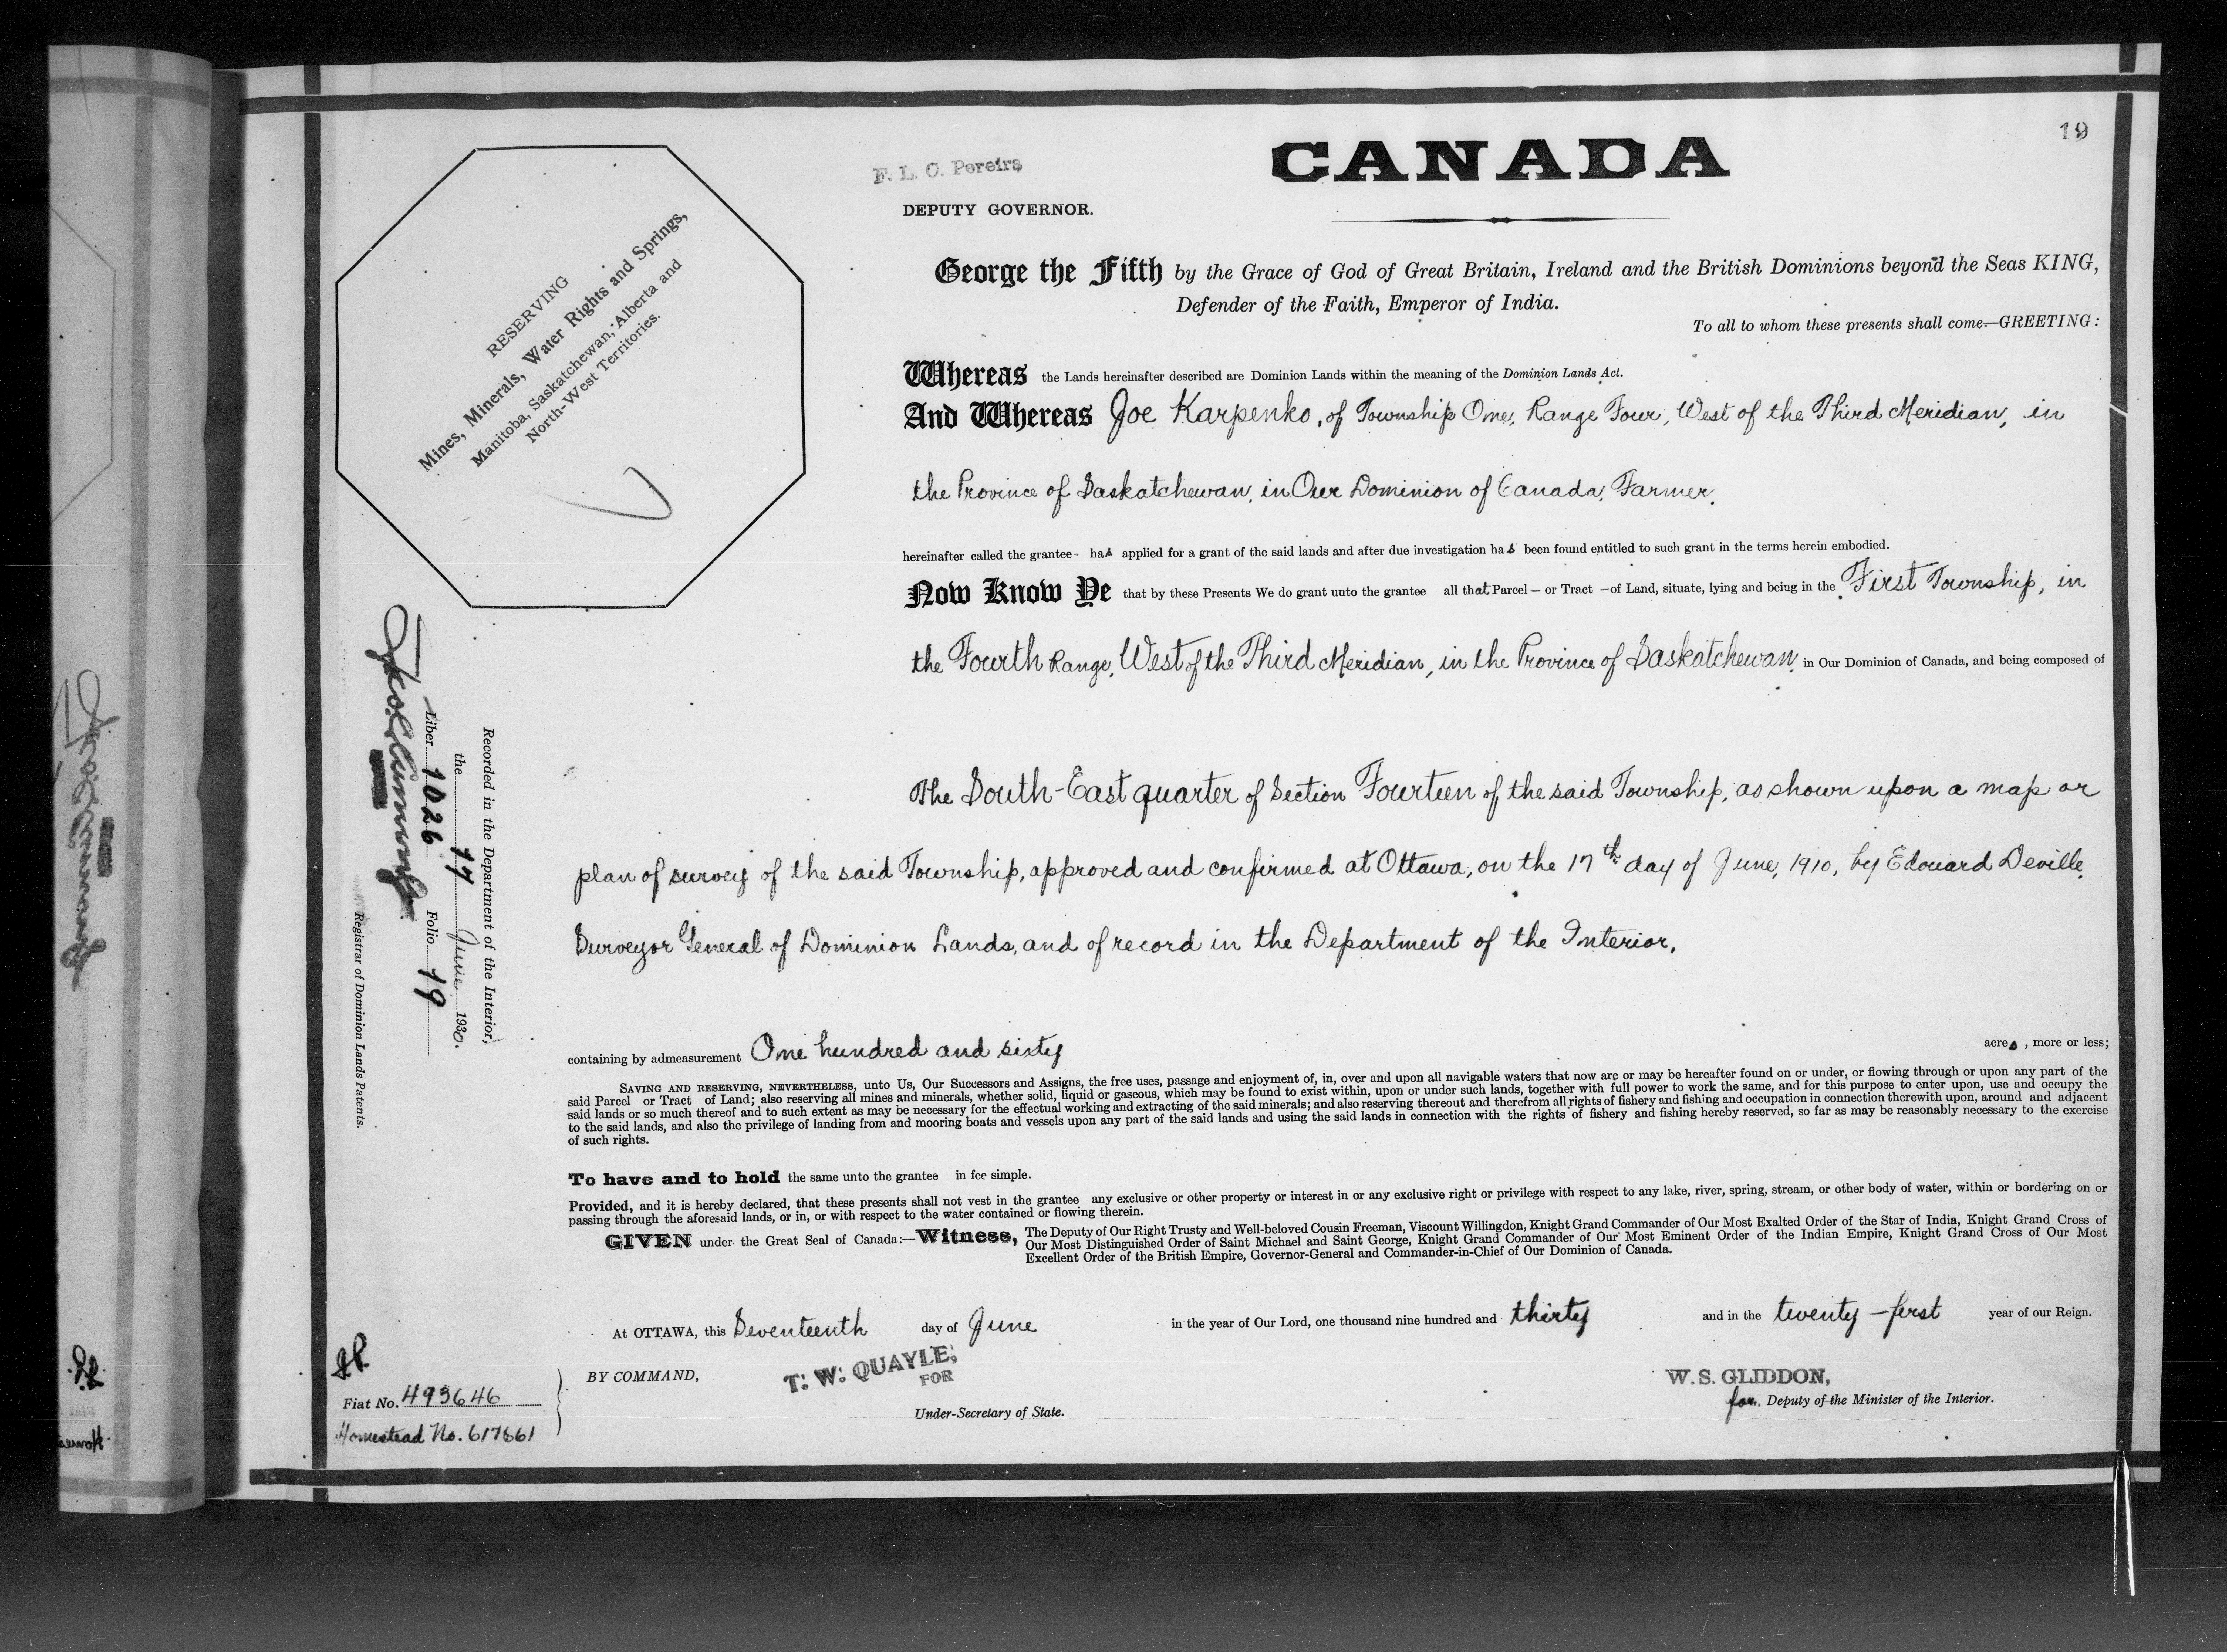 19
CANADA
F. L. C. Pereira
DEPUTY GOVERNOR.
RESERVING
Mines, Minerals, Water Rights and Springs,
Manitoba, Saskatchewan, Alberta and
North-West Territories.
George the Fifth by the Grace of God of Great Britain, Ireland and the British Dominions beyond the Seas KING,
Defender of the Faith, Emperor of India.
To all to whom these presents shall come—GREETING:
Whereas the Lands hereinafter described are Dominion Lands within the meaning of the Dominion Lands Act.
And Whereas Joe Karpenko, of Township One, Range Four, West of the Third Meridian, in
the Province of Saskatchewan, in Our Dominion of Canada, Farmer,
hereinafter called the grantee- has applied for a grant of the said lands and after due investigation has been found entitled to such grant in the terms herein embodied.
Now Know Ye that by these Presents We do grant unto the grantee all that Parcel — or Tract — of Land, situate, lying and being in the First Township, in
the Fourth Range, West of the Third Meridian, in the Province of Saskatchewan, in Our Dominion of Canada, and being composed of
The South-East quarter of Section Fourteen of the said Township, as shown upon a map or
plan of survey of the said Township, approved and confirmed at Ottawa, on the 17th day of June, 1910, by Edouard Deville,
Surveyor General of Dominion Lands, and of record in the Department of the Interior,
containing by admeasurement One hundred and sixty acres, more or less;
SAVING AND RESERVING, NEVERTHELESS, unto Us, Our Successors and Assigns, the free uses, passage and enjoyment of, in, over and upon all navigable waters that now are or may be hereafter found on or under, or flowing through or upon any part of the
said Parcel or Tract of Land; also reserving all mines and minerals, whether solid, liquid or gaseous, which may be found to exist within, upon or under such lands, together with full power to work the same, and for this purpose to enter upon, use and occupy the
said lands or so much thereof and to such extent as may be necessary for the effectual working and extracting of the said minerals; and also reserving thereout and therefrom all rights of fishery and fishing and occupation in connection therewith upon, around and adjacent
to the said lands, and also the privilege of landing from and mooring boats and vessels upon any part of the said lands and using the said lands in connection with the rights of fishery and fishing hereby reserved, so far as may be reasonably necessary to the exercise
of such rights.
To have and to hold the same unto the grantee in fee simple.
Provided, and it is hereby declared, that these presents shall not vest in the grantee any exclusive or other property or interest in or any exclusive right or privilege with respect to any lake, river, spring, stream, or other body of water, within or bordering on or
passing through the aforesaid lands, or in, or with respect to the water contained or flowing therein.
GIVEN under the Great Seal of Canada:—Witness, The Deputy of Our Right Trusty and Well-beloved Cousin Freeman, Viscount Willingdon, Knight Grand Commander of Our Most Exalted Order of the Star of India, Knight Grand Cross of
Our Most Distinguished Order of Saint Michael and Saint George, Knight Grand Commander of Our Most Eminent Order of the Indian Empire, Knight Grand Cross of Our Most
Excellent Order of the British Empire, Governor-General and Commander-in-Chief of Our Dominion of Canada.
At OTTAWA, this Seventeenth day of June in the year of Our Lord, one thousand nine hundred and thirty and in the twenty-first year of our Reign.
BY COMMAND,
T. W. QUAYLE,
FOR
Under-Secretary of State.
W. S. GLIDDON,
for Deputy of the Minister of the Interior.
Recorded in the Department of the Interior,
the 17 June 1930.
Liber 1026 Folio 19
Registrar of Dominion Lands Patents.
Fiat No. 493646
Homestead No. 617661